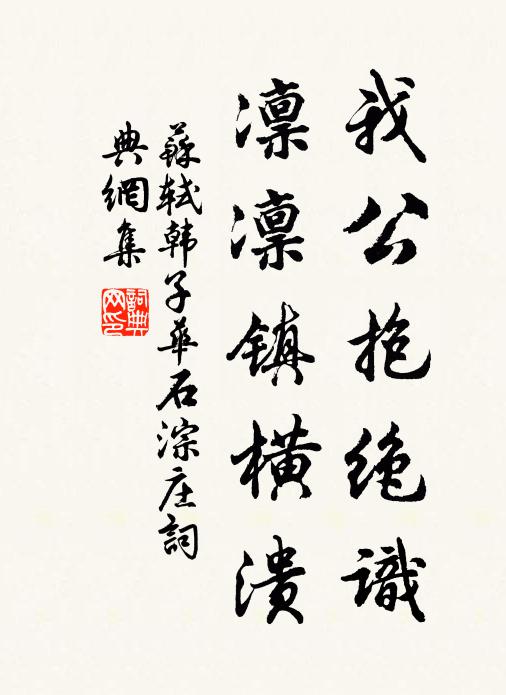 我公抱绝識
凛凛镇橫溃
蘇轼韩子華石淙庄詞
典網集
詞典網印